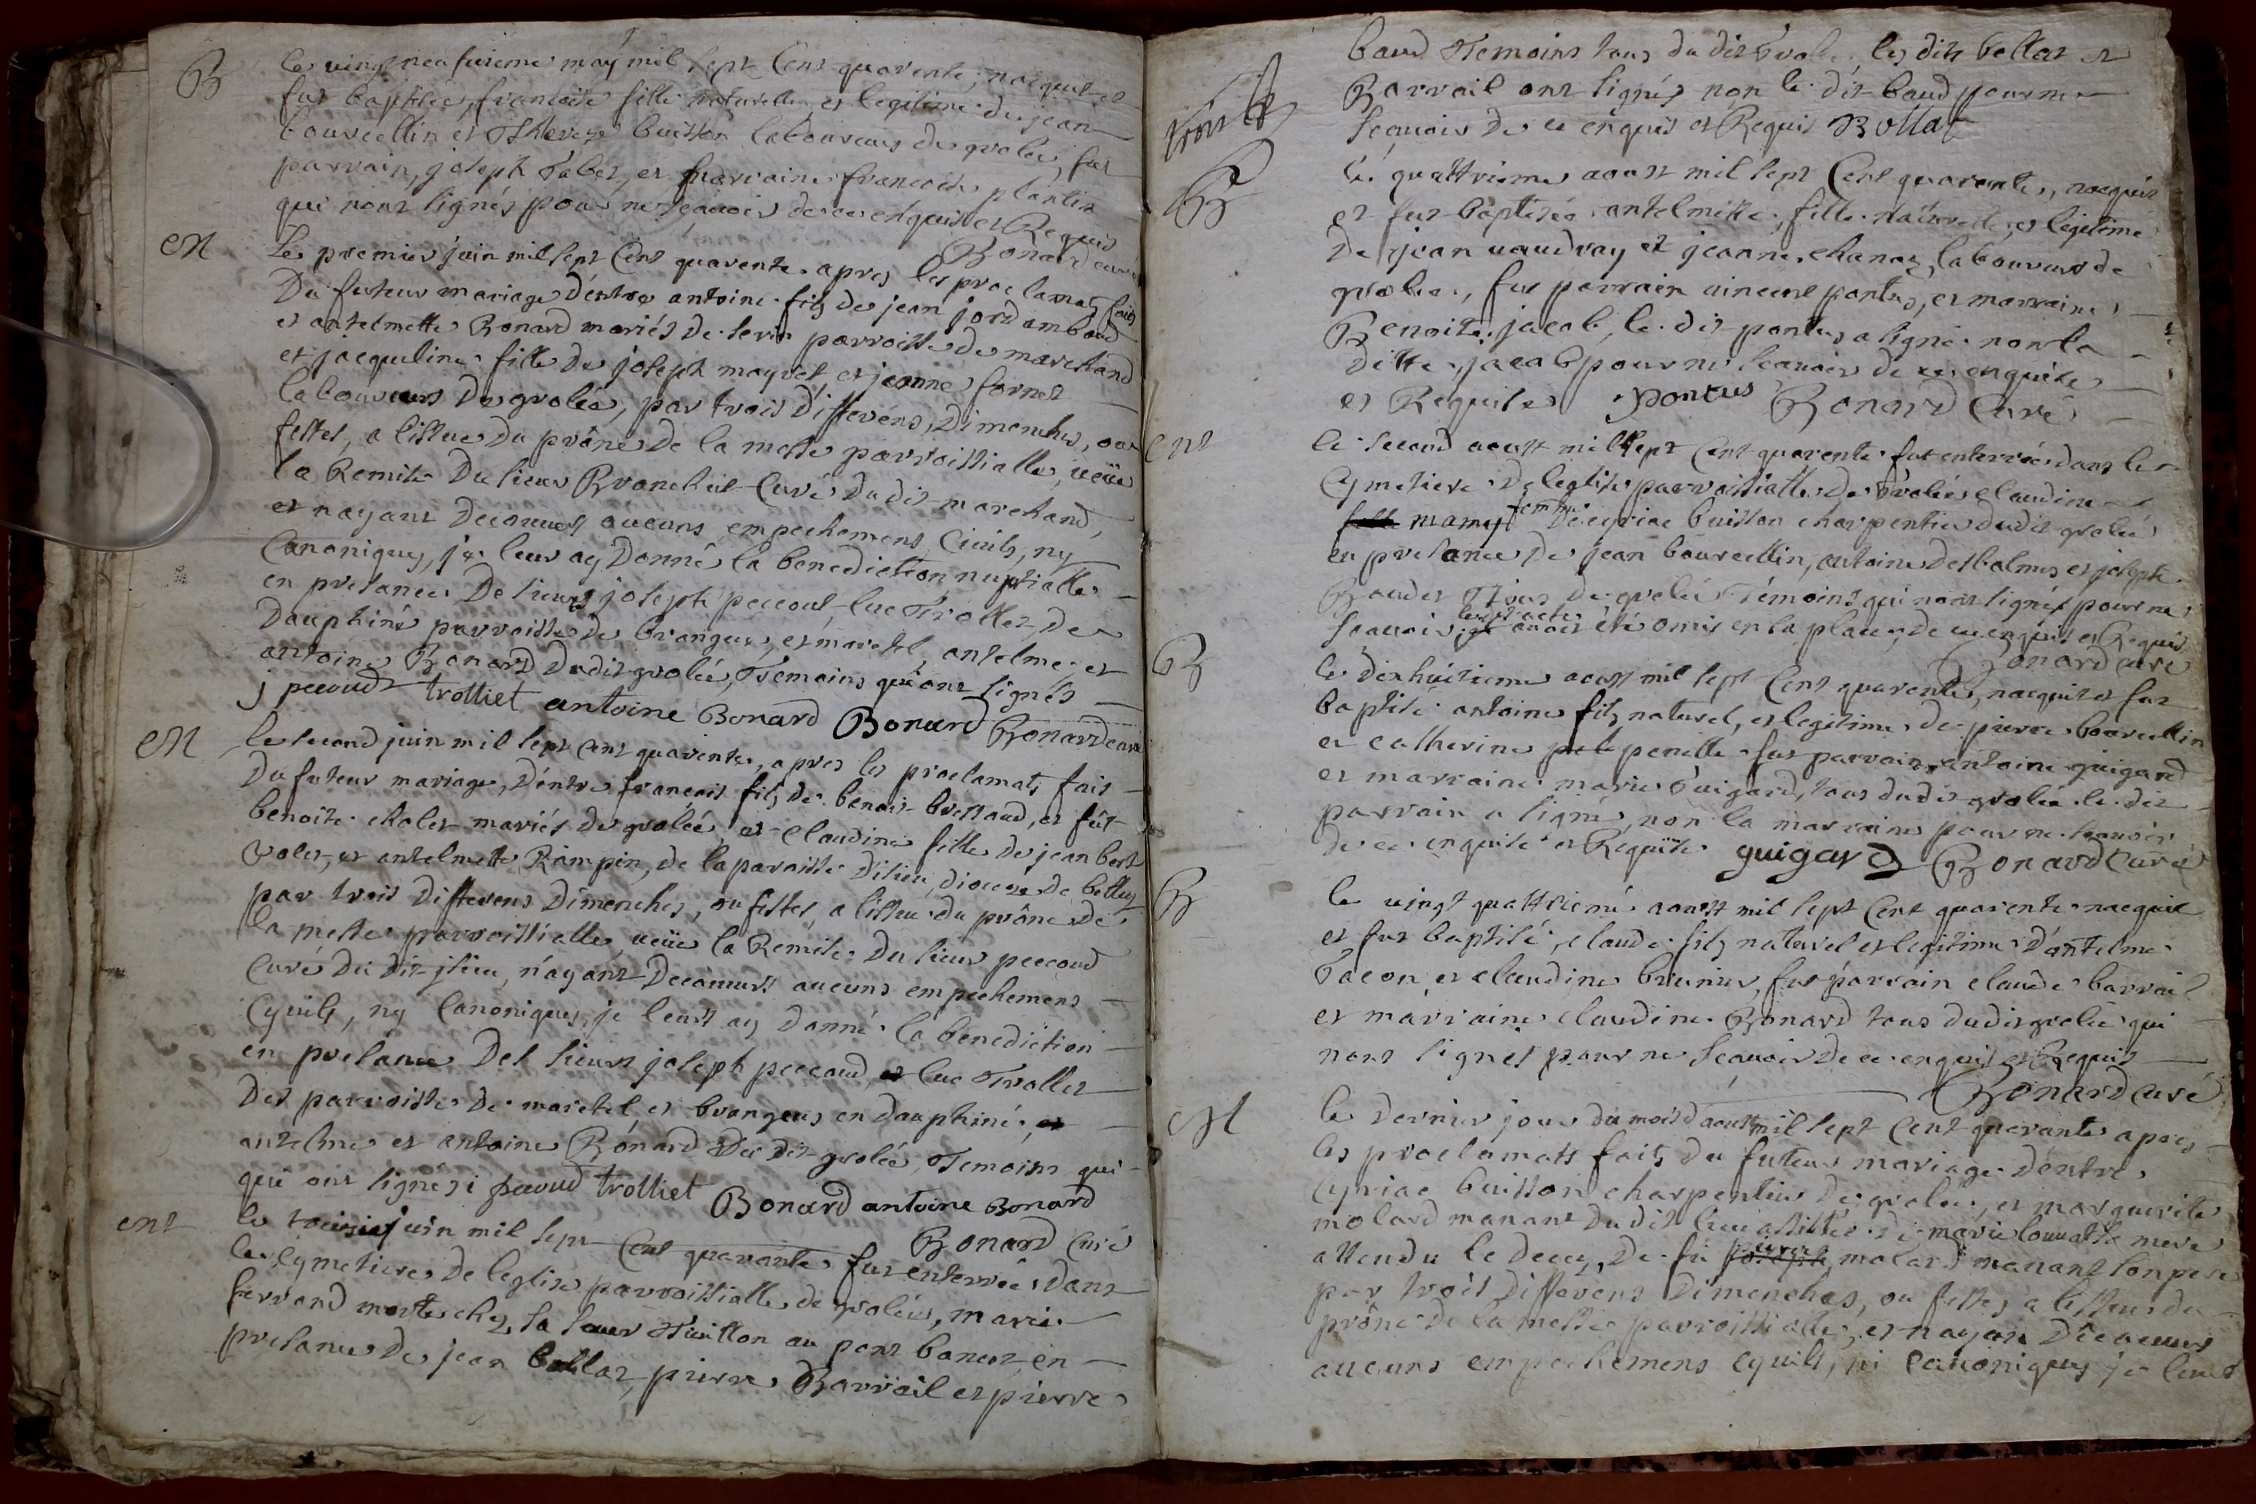 B
le vingt neufvieme may mil sept cent quarente, nacquit et
fut baptisée, francoise fille naturelle et legitime de jean
bourcellin et Therese buisson laboureurs de grolée, fut
parrain, joseph Tabet, et marraine francoise plantin
qui n'ont signés pour ne scavoir de ce enquis et Requis
Bonard curé
M
Le premier juin mil sept cent quarente apres les proclamats faits
Du futeur mariage d'entre antoine fils de jean jordambaud
et antelmette Bonard mariés de serin parroisse de marchand
et jacqueline fille de joseph mayret et jeanne fornet
laboureurs de grolée, par trois differens, Dimenches, ou
festes, a lissue du prône de la messe parroissialle, veüe
la Remise du sieur Branchut Curé du dit marchand,
et n'ayant decouvert aucuns empechemens Civils, ny
Canoniques, je leur ay Donné la benediction nuptialle
en presance De sieurs joseph peccoud luc Trolliet, de
Dauphiné parroisse de brangue, et marestel, antelme et
antoine Bonard du dit grolée, Temoins qui ont signés
j peccoud trolliet antoine Bonard Bonard Bonard curé
M
le second juin mil sept cent quarente, apres les proclamats fait
Du futeur mariage, d'entre francois fils de benoit bressaud, et fût
benoite cholet mariés de grolée et claudine fille de jean bert
volet, et antelmette Rampin, de la paroisse disieu, diocese de belley
par trois differens Dimenches, ou festes, a lissue du prône de
la messe parroissialle veüe la Remise du sieur peccoud
curé du dit jsieu, n'ayant Decouverts aucuns empechemens
Cyvils, ny Canoniques, je leurs ay donné la benediction
en presance Des sieurs joseph peccoud, et luc Trolliet
Des parroisse de marestel et brangues en dauphiné, et
antelme et antoine Bonard du dit grolée, Temoins qui
qui ont signés j peccoud trolliet Bonard antoine Bonard
Bonard Curé
ent
le troisie juin mil sept cent quarante fut enterrée dans
le Cymetiere de leglise parroissialle de grolée, marie
ferrand morte chez sa soeur Thuillon au pont banet, en
presance de jean bollat, pierre Barrail et pierre
baud Temoins tous du dit Grolée, les dits bollat et
Barrail ont signés non le dit baud pour ne
Scavoir De ce enquis et Requis Bollat
B
Le quattrieme aoust mil sept Cent quarante, nacquit
et fut baptisée antelmette, fille naturelle, et legitime
De jean vaudray et jeanne chanaz, laboureurs de
grolée, fut parrain vincent pontus, et marraine
Benoite jacob, le dit pontus a signé non la
Ditte jacob pour ne scavoir de ce enquise
et Requise pontus Bonard Curé
ent
le second aoust mil sept cent quarente fut enterrée dans le
Cymetiere De leglise parroissialle De Grolée claudine
mamy femme De cyriac buisson charpentier dudit grolée
en presance De jean bourcellin, antoine desbalmes et joseph
Baudet Tous de grolée Témoins qui n'ont signés pour ne
scavoir, été omis en sa place, de ce enquis et Requis
Bonard curé
B
le dix huitieme aoust mil sept Cent quarente, nacquit et fut
baptisé antoine fils naturel, et legitime de pierre bourcellin
et catherine penelle fut parrain antoine guigard
et marraine marie Guigard, tous du dit grolée le dit
parrain a signé, non la marraine pour ne scavoir
de ce enquise et Requise guigard Bonard Curé
B
le vingt quattrieme aoust mil sept Cent quarente nacquit
et fut baptisé, claude fils naturel et legitime d'antelme
Tacon, et claudine brunier, fut parrain claude barrail
et marraine claudine Bonard tous dudit grolée qui
n'ont signés pour ne scavoir De ce enquis et Requis
Bonard Curé
M
le Dernier jour du mois d'aoust mil sept Cent quarante apres
les proclamats faits du futeur mariage d'entre
Cyriac buisson charpentier de grolée, et marguerite
molard manant du dit lieu assistée de marie mere
attendu le decez, De fu pierre molard manant son pere
par trois differens Dimenches, ou festes a lissue du
prône de la messe parroissialle, et n'ayant Decouvert
aucuns empechemens cyvils, ni canoniques je leurs